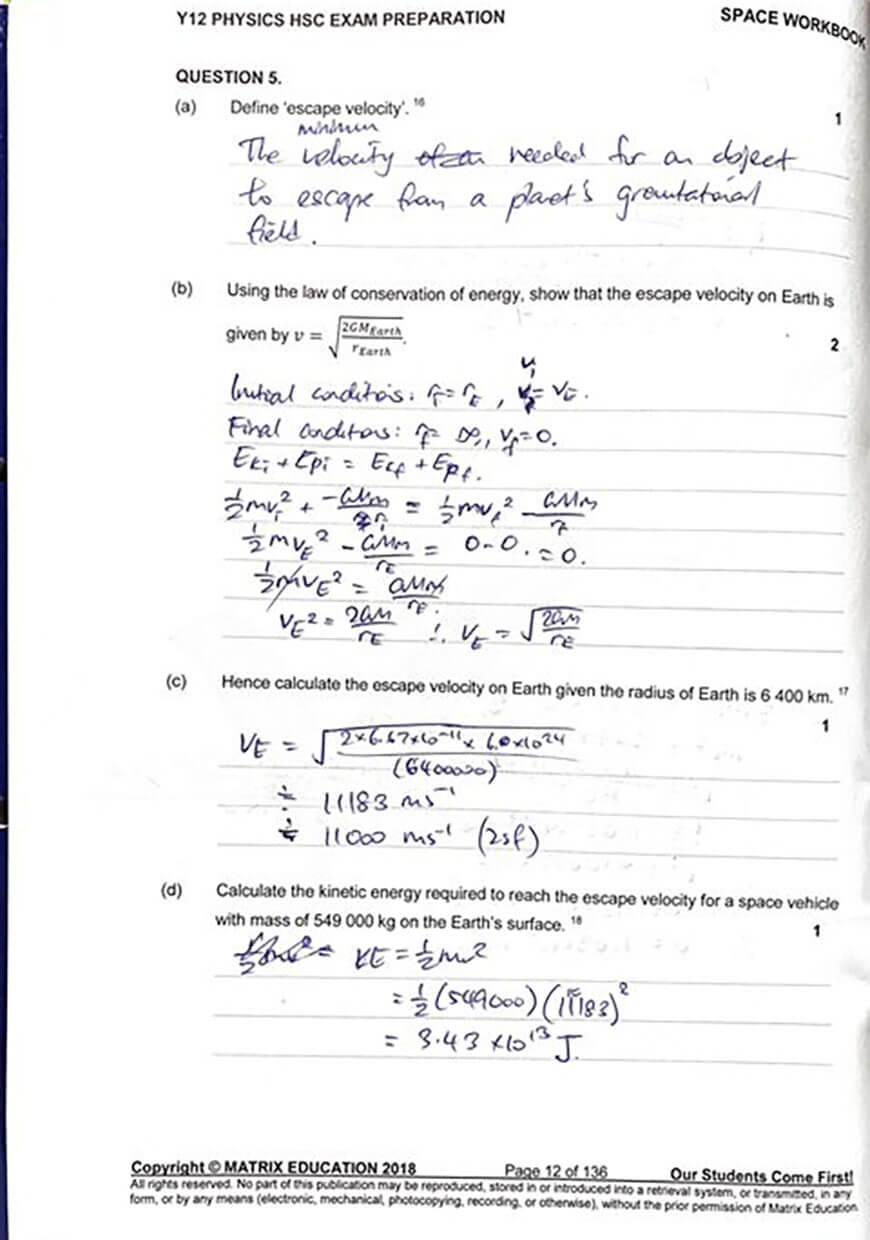 Y12 PHYSICS HSC EXAM PREPARATION SPACE WORKBOOK
QUESTION 5.
(a) Define 'escape velocity'. 16
1
minimum
The velocity needed for an object
to escape from a planet's gravitational
field.
(b) Using the law of conservation of energy, show that the escape velocity on Earth is
given by v = √(2GM_Earth / r_Earth).
2
Initial conditions: r_i = r_E , v_i = v_E.
Final conditions: r_f = ∞, v_f = 0.
E_ki + E_pi = E_kf + E_pf.
½mv_i² + -GMm/r_i = ½mv_f² - GMm/r
½mv_E² - GMm/r_E = 0 - 0. = 0.
½mv_E² = GMm/r_E.
v_E² = 2GM/r_E ∴ v_E = √(2GM/r_E)
(c) Hence calculate the escape velocity on Earth given the radius of Earth is 6 400 km. 17
1
V_E = √(2×6.67×10⁻¹¹ × 6.0×10²⁴ / (6400000))
≐ 11183 ms⁻¹
≐ 11000 ms⁻¹ (2sf)
(d) Calculate the kinetic energy required to reach the escape velocity for a space vehicle
with mass of 549 000 kg on the Earth's surface. 18
1
KE = ½mv²
= ½(549000)(11183)²
= 3.43 ×10¹³ J.
Copyright © MATRIX EDUCATION 2018 Page 12 of 136 Our Students Come First!
All rights reserved. No part of this publication may be reproduced, stored in or introduced into a retrieval system, or transmitted, in any
form, or by any means (electronic, mechanical, photocopying, recording, or otherwise), without the prior permission of Matrix Education